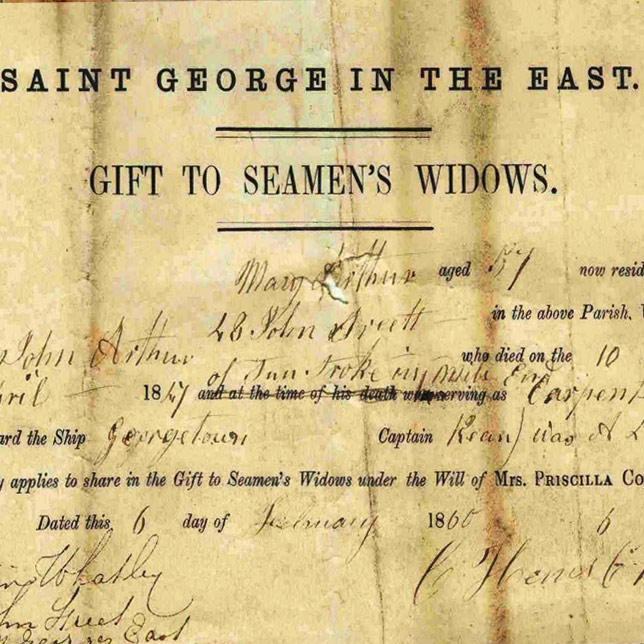 SAINT GEORGE IN THE EAST.
GIFT TO SEAMEN'S WIDOWS.
Mary Arthur aged 57 now resid
28 John Street in the above Parish, W
John Arthur who died on the 10
of Sun Stroke in Mile End
pril 1847 and at the time of his death was serving as Carpen
ard the Ship Georgetown Captain Kean) was A
y applies to share in the Gift to Seamen's Widows under the Will of Mrs. PRISCILLA CO
Dated this, 6 day of February 1860 6
Wheatley
hn Street
George's East